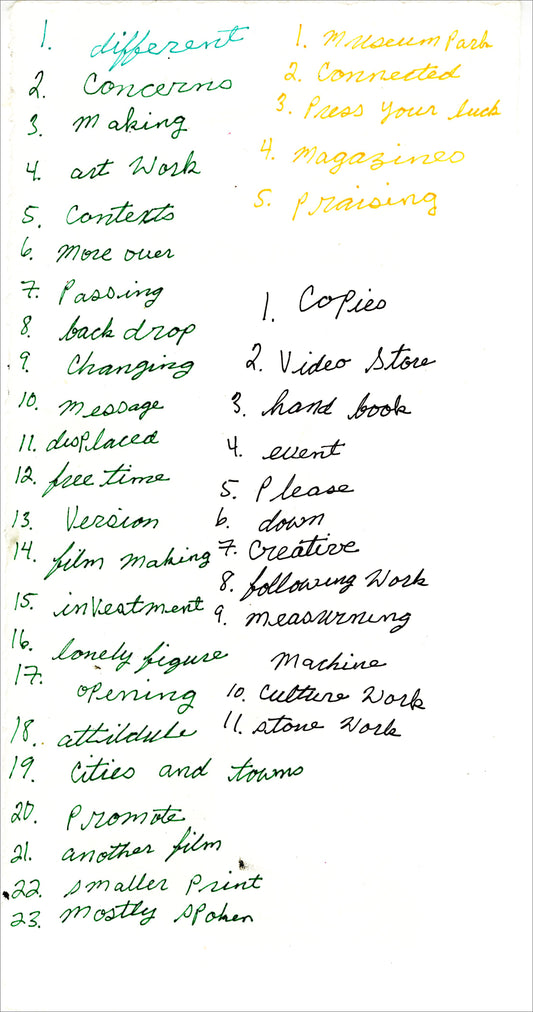 1. different
2. Concerns
3. Making
4. art Work
5. Contexts
6. More over
7. Passing
8. back drop
9. Changing
10. message
11. displaced
12. free time
13. Version
14. film making
15. investment
16. lonely figure
17. opening
18. attildule
19. Cities and towns
20. Promote
21. another film
22. smaller Print
23. Mostly spoken
1. Museum Park
2. Connected
3. Press your luck
4. Magazines
5. Praising
1. Copies
2. Video Store
3. hand book
4. event
5. Please
6. down
7. Creative
8. following Work
9. measurning
Machine
10. Culture Work
11. stone Work